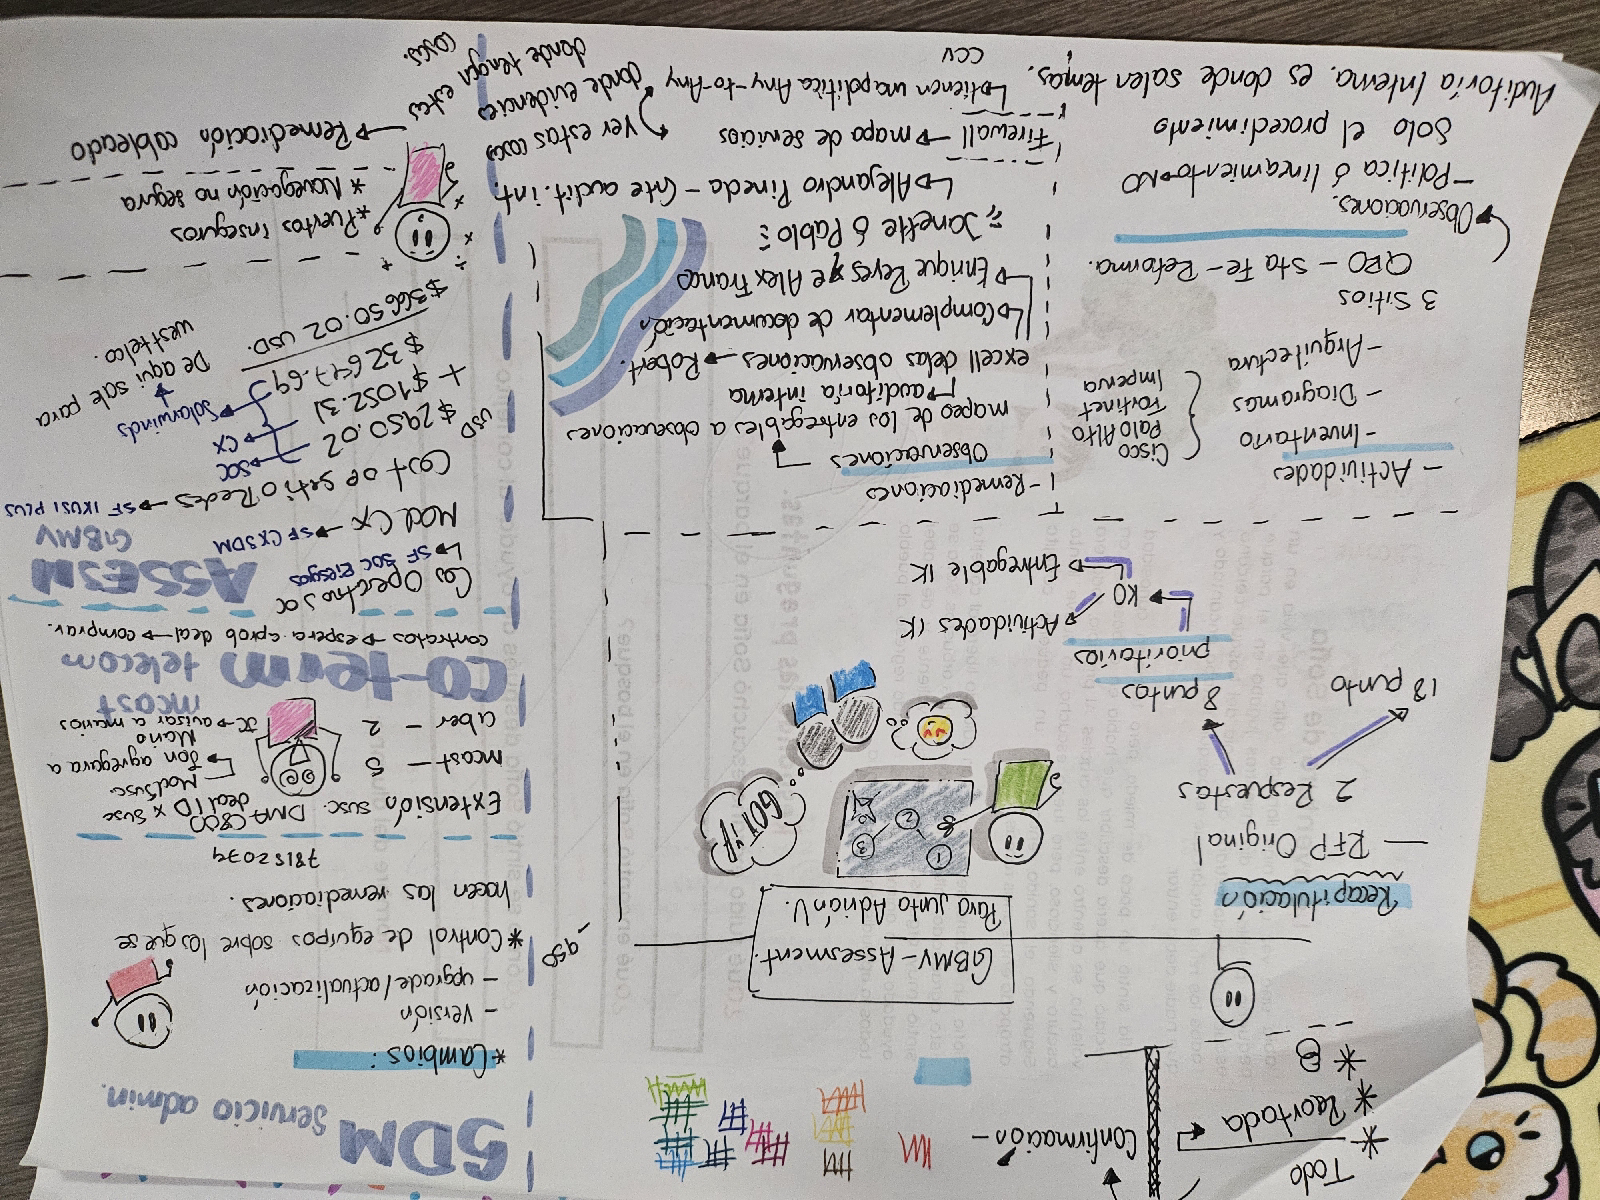 SDM Servicio admin.
* Cambios:
- versión
- upgrade/actualización
* Control de equipos sobre los que se
hacen las remediaciones.
78152074
Extensión susc. DNA C800
deal ID x susc
mcast - 5
ciber - 2
Mod. Susc.
Jon agregara a
Mario
JC → avisar a marios
co-term mcast
telecom
contratos → espera aprob deal → comprar.
ASSESM
GBMV
Cas Operativo SOC
↳ SF SOC Riesgos
Mod. CX → SF CX SDM
Cost op serio Redes → SF IKUSI PLUS
$2950.02 USD
+ $1052.31
$32647.69
$36650.02 USD.
SOC
CX
Solarwinds
De aqui sale para
westtelco.
* Puertos inseguros
* Navegación no segura
→ Remediación cableado
Todo
* Recortada
* B
Confirmación -
GBMV - Assesment.
Para junta Adrián V.
950
Recapitulación
— RFP Original
2 Respuestas
18 punto
8 puntos
prioritarios
KO
Actividades 1K
Entregable 1K
GOT iT
1
2
3
- Actividades
- Inventario
- Diagramas
- Arquitectura
Cisco
Palo Alto
Fortinet
Imperva
3 Sitios
QRO - Sta Fe - Reforma.
Observaciones.
- Politica ó lineamiento → NO
Solo el procedimiento
Auditoría Interna. es donde salen temas.
1- Remediaciones
Observaciones
mapeo de los entregables a observaciones
↱ auditoría interna
excell de las observaciones → Robert.
↳ Complementar de documentación
→ Enrique Reyes y e Alex Franco
Janette ó Pablo
↳ Alejandro Pineda - Gte audit. int.
Firewall → mapa de servicios
↳ tienen una politica Any-to-Any
CCV
ver estas cosas
donde evidencies
donde tengan estas
cosas.